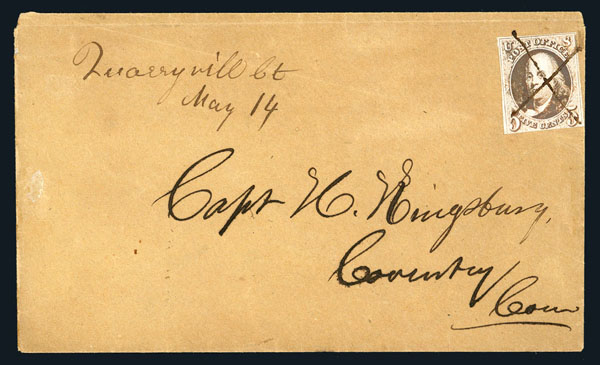 Quarryvill Ct
May 14
U S
POST OFFICE
FIVE CENTS
5 5
Capt H. Kingsbury,
Coventry
Conn